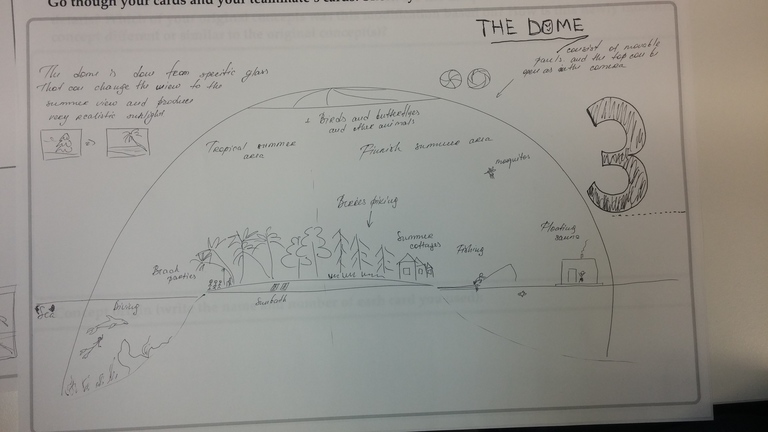 Go though your cards and your teammate's cards.
THE DOME
consist of movable
panels and the top can be
open as in the camera
The dome is done from specific glass
That can change the view to the
summer view and produce
very realistic sunlight
3
Birds and butterflies
and other animals
Tropical summer
area
Finnish summer area
mosquitos
Berries picking
Summer
cottages
Fishing
Floating
sauna
Beach
parties
Sunbath
Sea
Diving